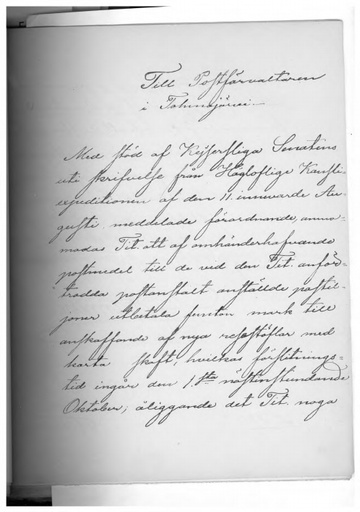 Till Postförvaltaren
i Tohmajärvi.
Med stöd af Kejserliga Senatens
uti skrifvelse från Höglofliga Kansli-
expeditionen af den 11 innevarande Au-
gusti meddelade förordnande, anmo-
modas Tit. att af omhänderhafvande
postmedel till de vid den Tit. anför-
trodda postanstalt anstälda postil-
joner utbetala femton mark till
anskaffande af nya resstöflar med
korta skaft, hvilkas förslitnings-
tid ingår den 1sta nästinstundande
Oktober; åliggande det Tit. noga